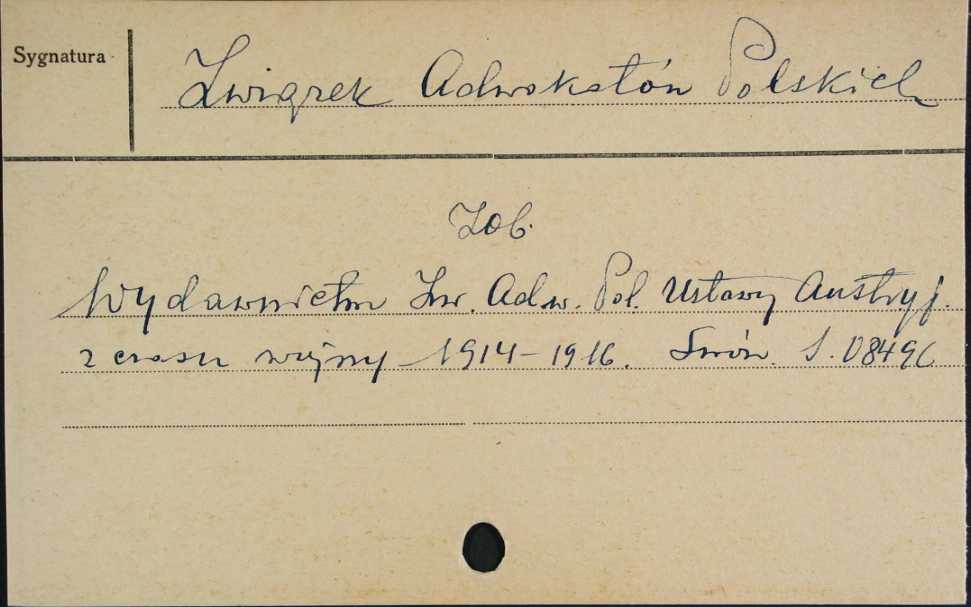 Sygnatura
Związek Adwokatów Polskich
Zob.
Wydawnictw Zw. Adw. Pol. Ustawy Austryj.
z czasu wojny – 1914 – 1916. Lwów.